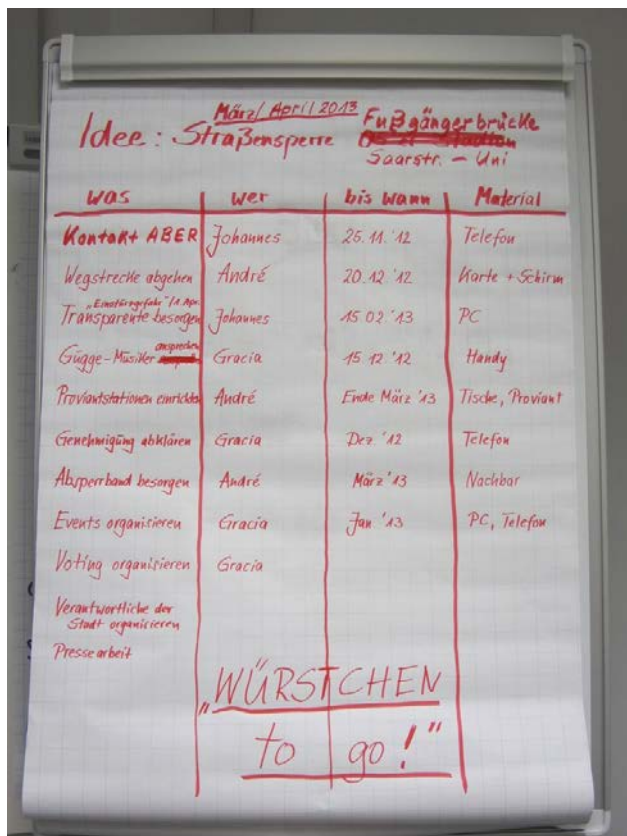 März/April 2013
Idee: Straßensperre Fußgängerbrücke
Saarstr. – Uni
was wer bis wann Material
Kontakt ABER Johannes 25.11.'12 Telefon
Wegstrecke abgehen André 20.12.'12 Karte + Schirm
"Einstürzgefahr"/1. Apr.
Transparente besorgen Johannes 15.02.'13 PC
ansprechen
Gügge-Musiker Gracia 15.12.'12 Handy
Proviantstationen einrichten André Ende März '13 Tische, Proviant
Genehmigung abklären Gracia Dez. '12 Telefon
Absperrband besorgen André März '13 Nachbar
Events organisieren Gracia Jan '13 PC, Telefon
Voting organisieren Gracia
Verantwortliche der
Stadt organisieren
Pressearbeit
„WÜRSTCHEN
to go!"